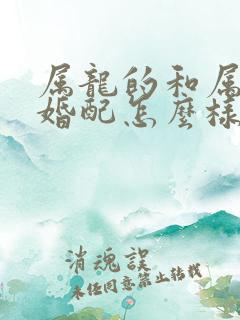 属龍的和属
婚配怎麽樣
消魂誤
未经同意禁止转载